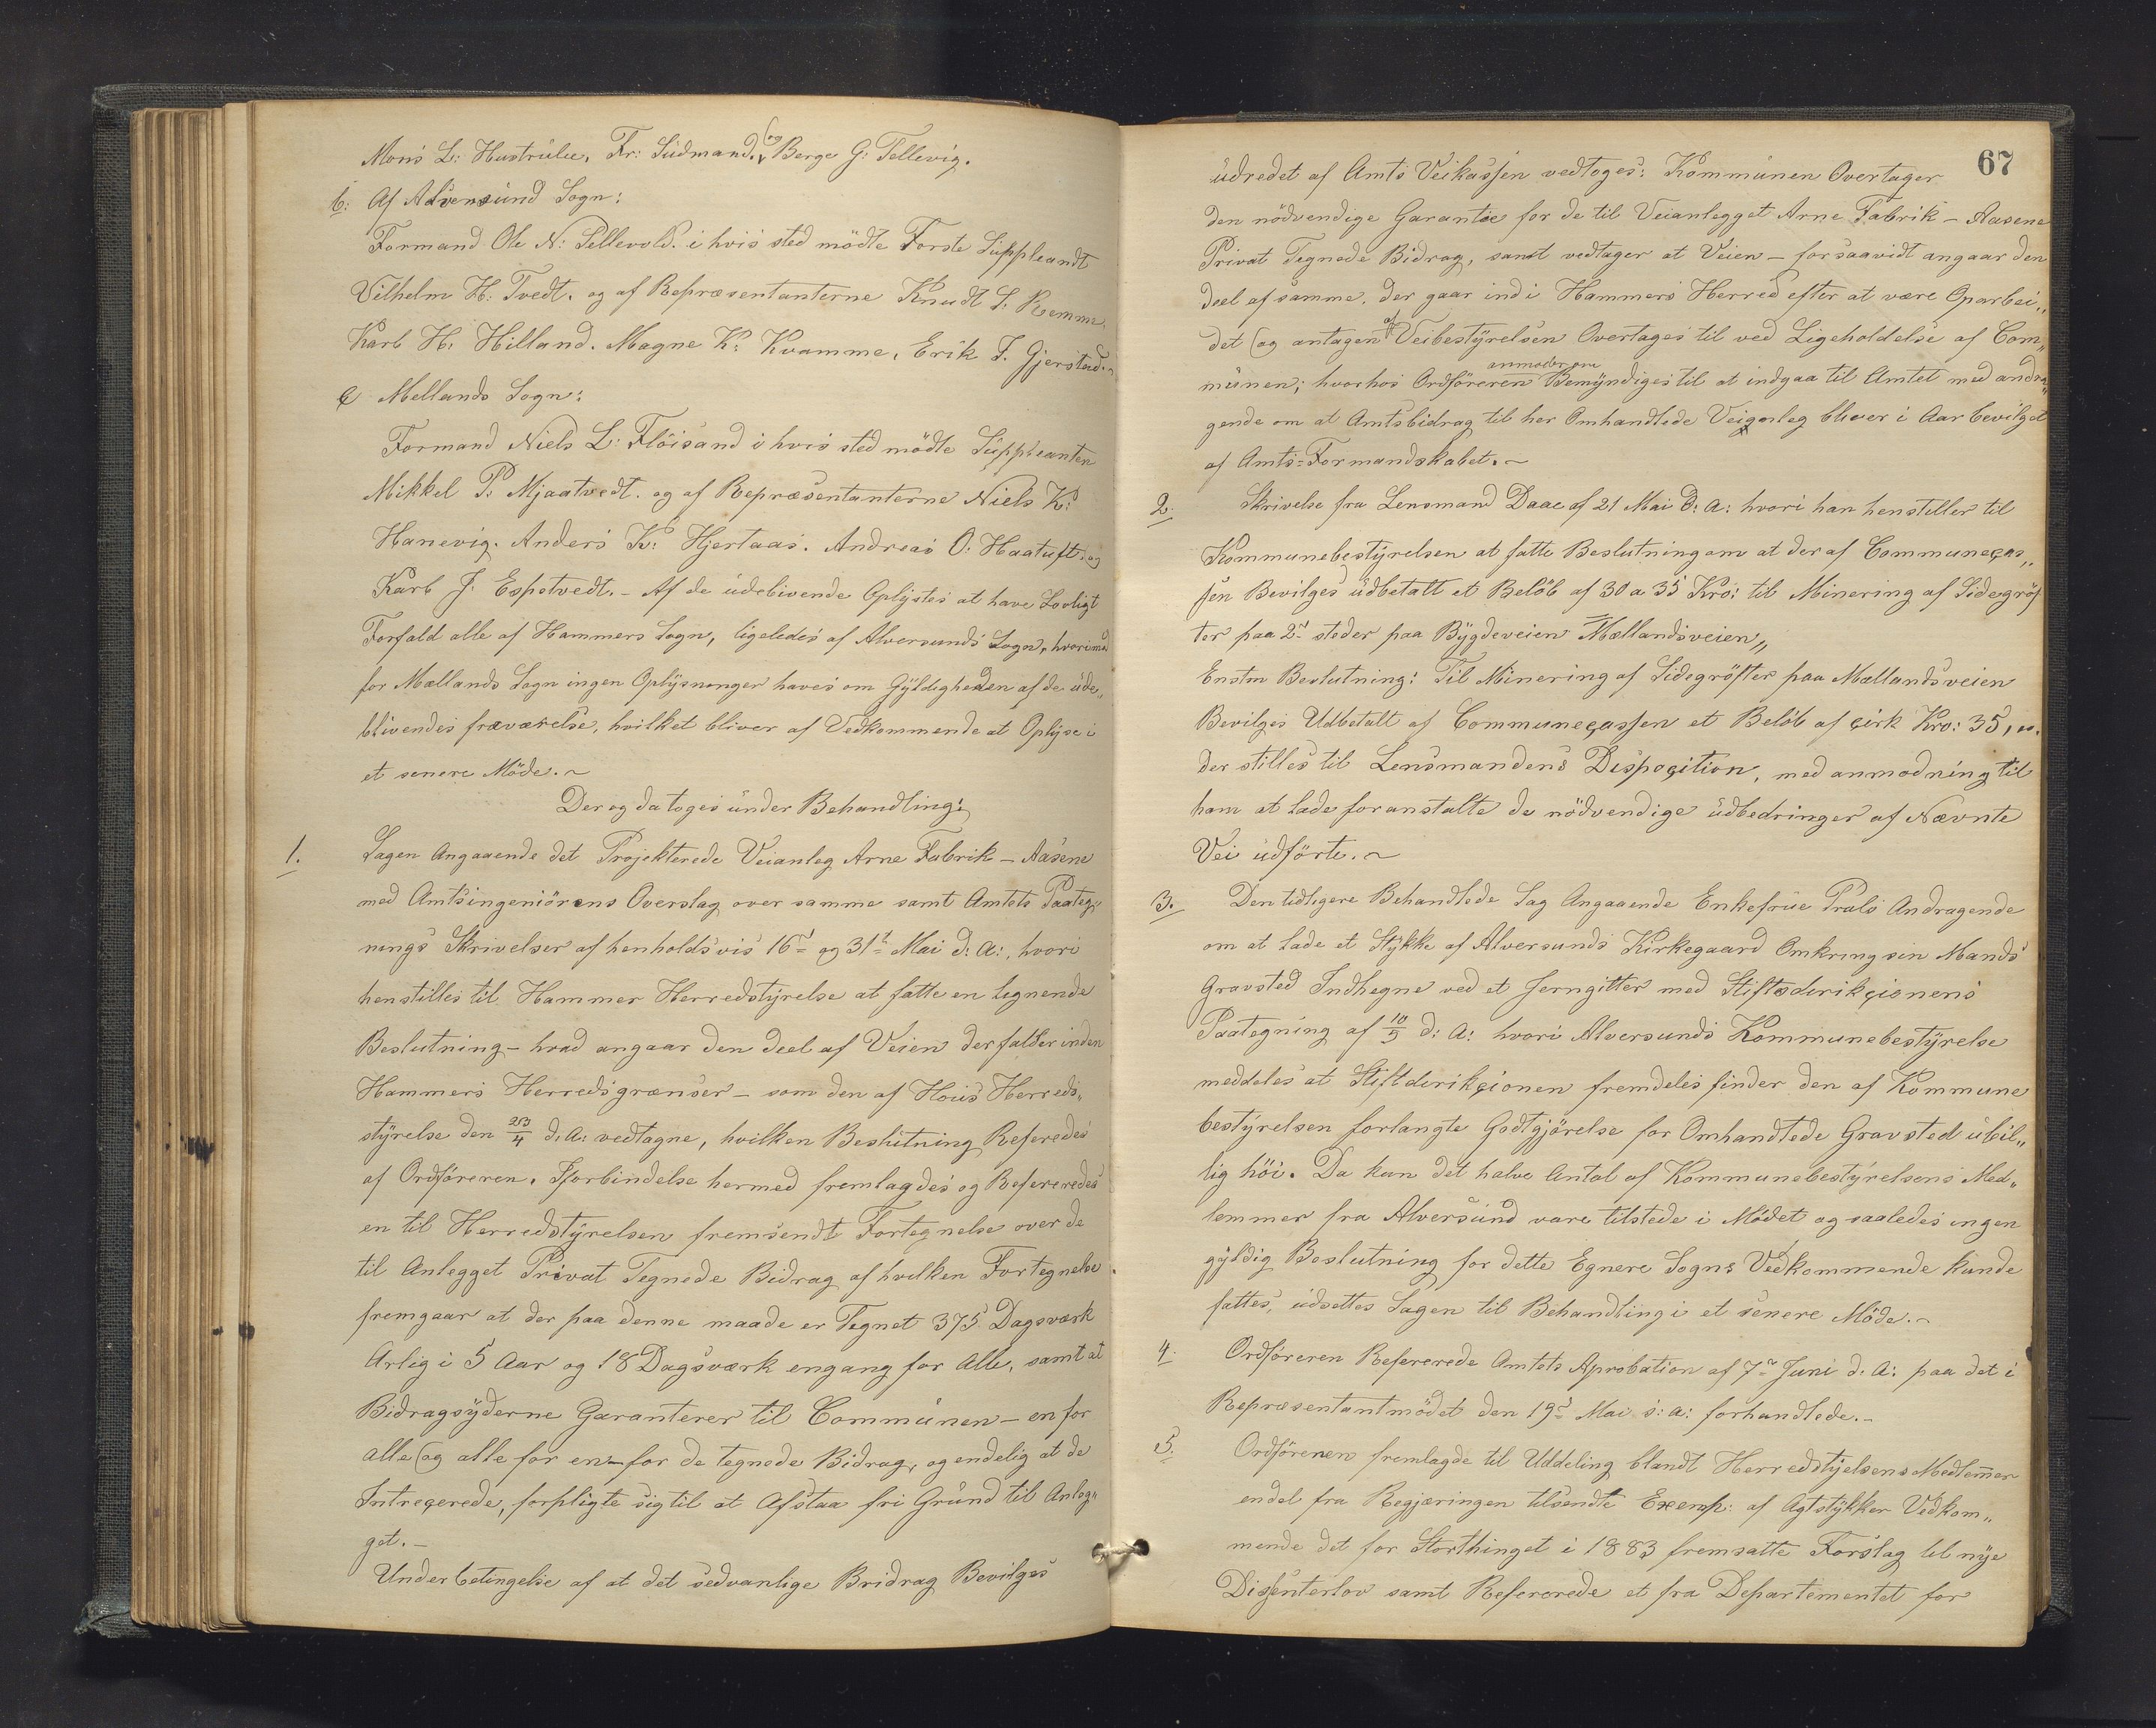 Mons L: Hustrulie, Fr: Sudmand. og Berge G: Tellevig.
b: Af Alversund Sogn:
Formand Ole N: Sellevold. i hvis sted mödte Forste Suppleandt
Vilhelm H: Tvedt. og af Repræsentanterne Knudt S: Remme,
Karl H. Hilland. Magne K: Kvamme, Erik I. Gjerstad.~
c Mellands Sogn:
Formand Niels L: Flöisand i hvis sted mödte Suppleanten
Mikkel P: Mjaatvedt. og af Repræsentanterne Niels K:
Hanevig. Anders K: Hjertaas. Andreas O: Haatuft. og
Karl J. Espetvedt. - Af de udebivende Oplystes at have Lovligt
Forfald alle af Hammers Sogn, ligeledes af Alversunds Sogn, hvorimod
for Mællands Sogn ingen Oplysnonger haves om Gyldigheden af de ude„
blivendes fraværelse, hvilket bliver af Vedkommende at Oplyse i
et senere Möde.~
Der og da toges under Behandling:
1. Sagen Angaaende det Projekterede Veianleg Arne Fabrik - Aasene
med Amtsingeniörens Overslag over samme samt Amtets Paateg„
nings Skrivelser af henholdsvis 16d og 31t Mai d: A:, hvori
henstilles til Hammer Herredstyrelse at fatte en lignende
Beslutning - hvad angaar den deel af Veien der falder inden
Hammers Herredsgrænser - som den af Hous Herreds„
styrelse den 23/4 d: A: vedtagne, hvilken Beslutning Referedes
af Ordföreren. I forbindelse hermed fremlagdes og Refereredes
en til Herredstyrelsen fremsendt Fortegnelse over de
til Anlegget Privat Tegnede Bidrag af hvilken Fortegnelse
fremgaar at der paa denne maade er Tegnet 375 Dagsværk
Arlig i 5 Aar og 18 Dagsværk engang for Alle, samt at
Bidragsyderne Garanterer til Communen - en for
alle og alle for en - for de tegnede Bidrag, og endelig at de
Intreçerede, forpligte sig til at Afstaa fri Grund til Anleg„
get.-
Under betingelse af at det sedvanlige Bridrag Bevilges
67
udredet af Amts Veikassen vedtoges: Kommunen Overtager
den nödvendige Garantie for de til Veianlegget Arne Fabrik - Aasene
Privat Tegnede Bidrag, samt vedtager at Veien - forsaavidt angaar den
deel af samme, der gaar ind i Hammers Herred efter at være Oparbei„
det og antagen af Veibestyrelsen Overtages til ved Ligeholdelse af Com„
munen; hvorhos Ordföreren anmodes om Bemyndiges til at indgaa til Amtet med andra„
gende om at Amtsbidrag til her Omhandlede Veianleg bliver i Aar bevilget
af Amts=Formandskabet.~
2. Skrivelse fra Lensmand Daae af 21 Mai d: A: hvori han henstiller til
Kommunebestyrelsen at fatte Beslutning om at der af Communeças„
sen Bevilges udbetalt et Belöb af 30 a 35 Kro: til Minering af Sidegröf
ter paa 2de steder paa Bygdeveien "Mællandsveien„
Enstm Beslutning: Til Minering af Sidegröfter paa Mællandsveien
Bevilges Udbetalt af Communeçassen et Belöb af çirk Kro: 35,00.
der stilles til Lensmandens Dispoçition, med anmodning til
ham at lade foranstalte de nödvendige udbedringer af Nævnte
Vei udförte.~
3. Den tidligere Behandlede Sag Angaaende Enkefrue Prals Andragende
om at lade et Stykke af Alversunds Kirkegaard Omkring sin Mands
Gravsted Indhegne ved et Jerngitter med Stiftsdirikçionens
Paategning af 10/5 d: A: hvori Alversunds Kommunebestyrelse
meddeles at Stiftdirikçionen fremdeles finder den af Kommune
bestyrelsen forlangte Godtgjörelse for Omhandlede Gravsted ubil„
lig höi. Da kun det halve Antal af Kommunebestyrelsens Med„
lemmer fra Alversund vare tilstede i Mödet og saaledes ingen
gyldig Beslutning for dette Egnere Sogns Vedkommende kunde
fattes, udsettes Sagen til Behandling i et senere Möde.~
4. Ordföreren Refererede Amtets Aprobation af 7de Juni d: A: paa det i
Repræsentantmödet den 19d Mai s: a: forhandlede.-
5. Ordföreren fremlagde til Uddeling blandt Herredstyelsens Medlemmer
endel fra Regjæringen tilsendte Exemp: af Agtstykker Vedkom„
mende det for Storthinget i 1883 fremsatte Forslag til nye
Dissenterlov samt Refererede et fra Departementet for